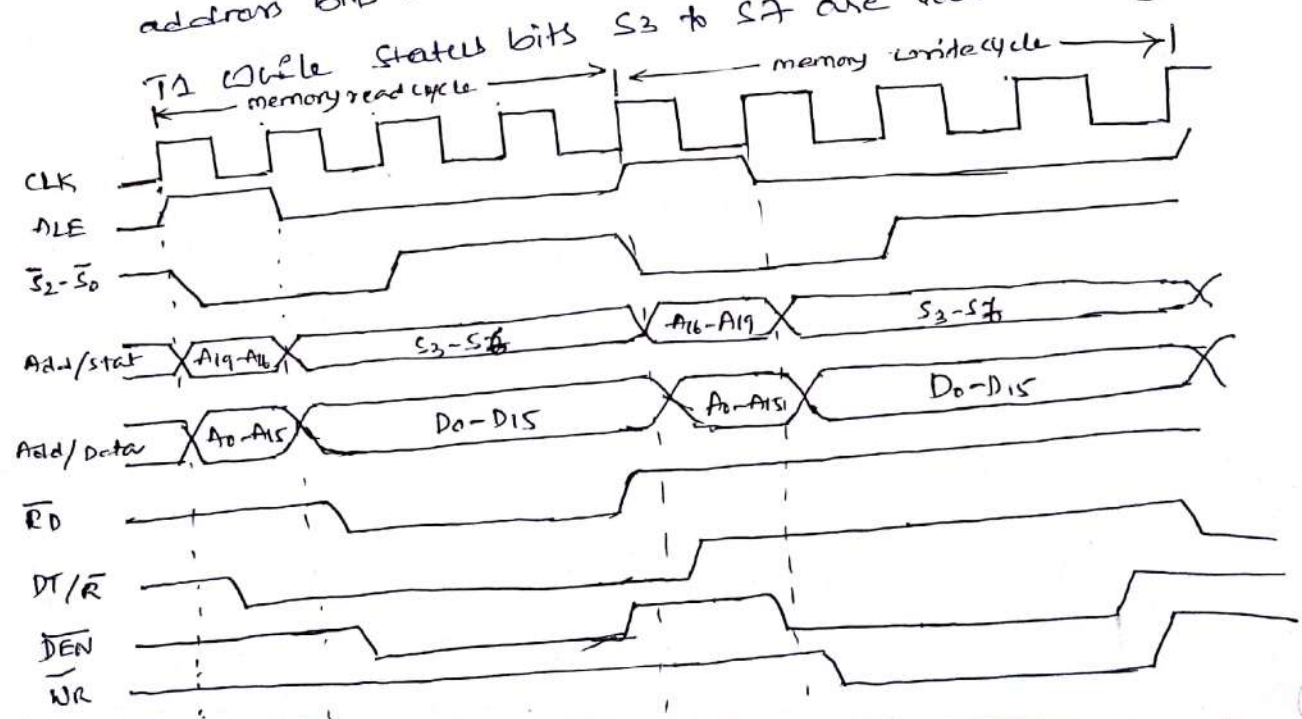 address
T1 while status bits S3 to S7 are
memory read cycle
memory write cycle
CLK
ALE
S̅2-S̅0
Add/stat
A19-A16
S3-S7
A16-A19
S3-S7
Add/Data
A0-A15
D0-D15
A0-A15
D0-D15
R̅D̅
DT/R̅
D̅E̅N̅
W̅R̅